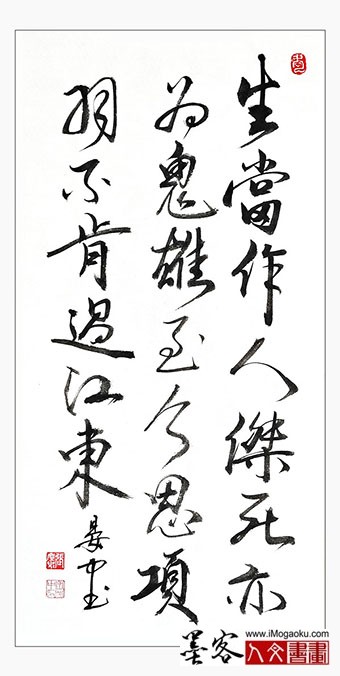 生當作人傑死亦
為鬼雄至今思項
羽不肯過江東
晏中书
墨客
www.iMogaoku.com
人文書畫